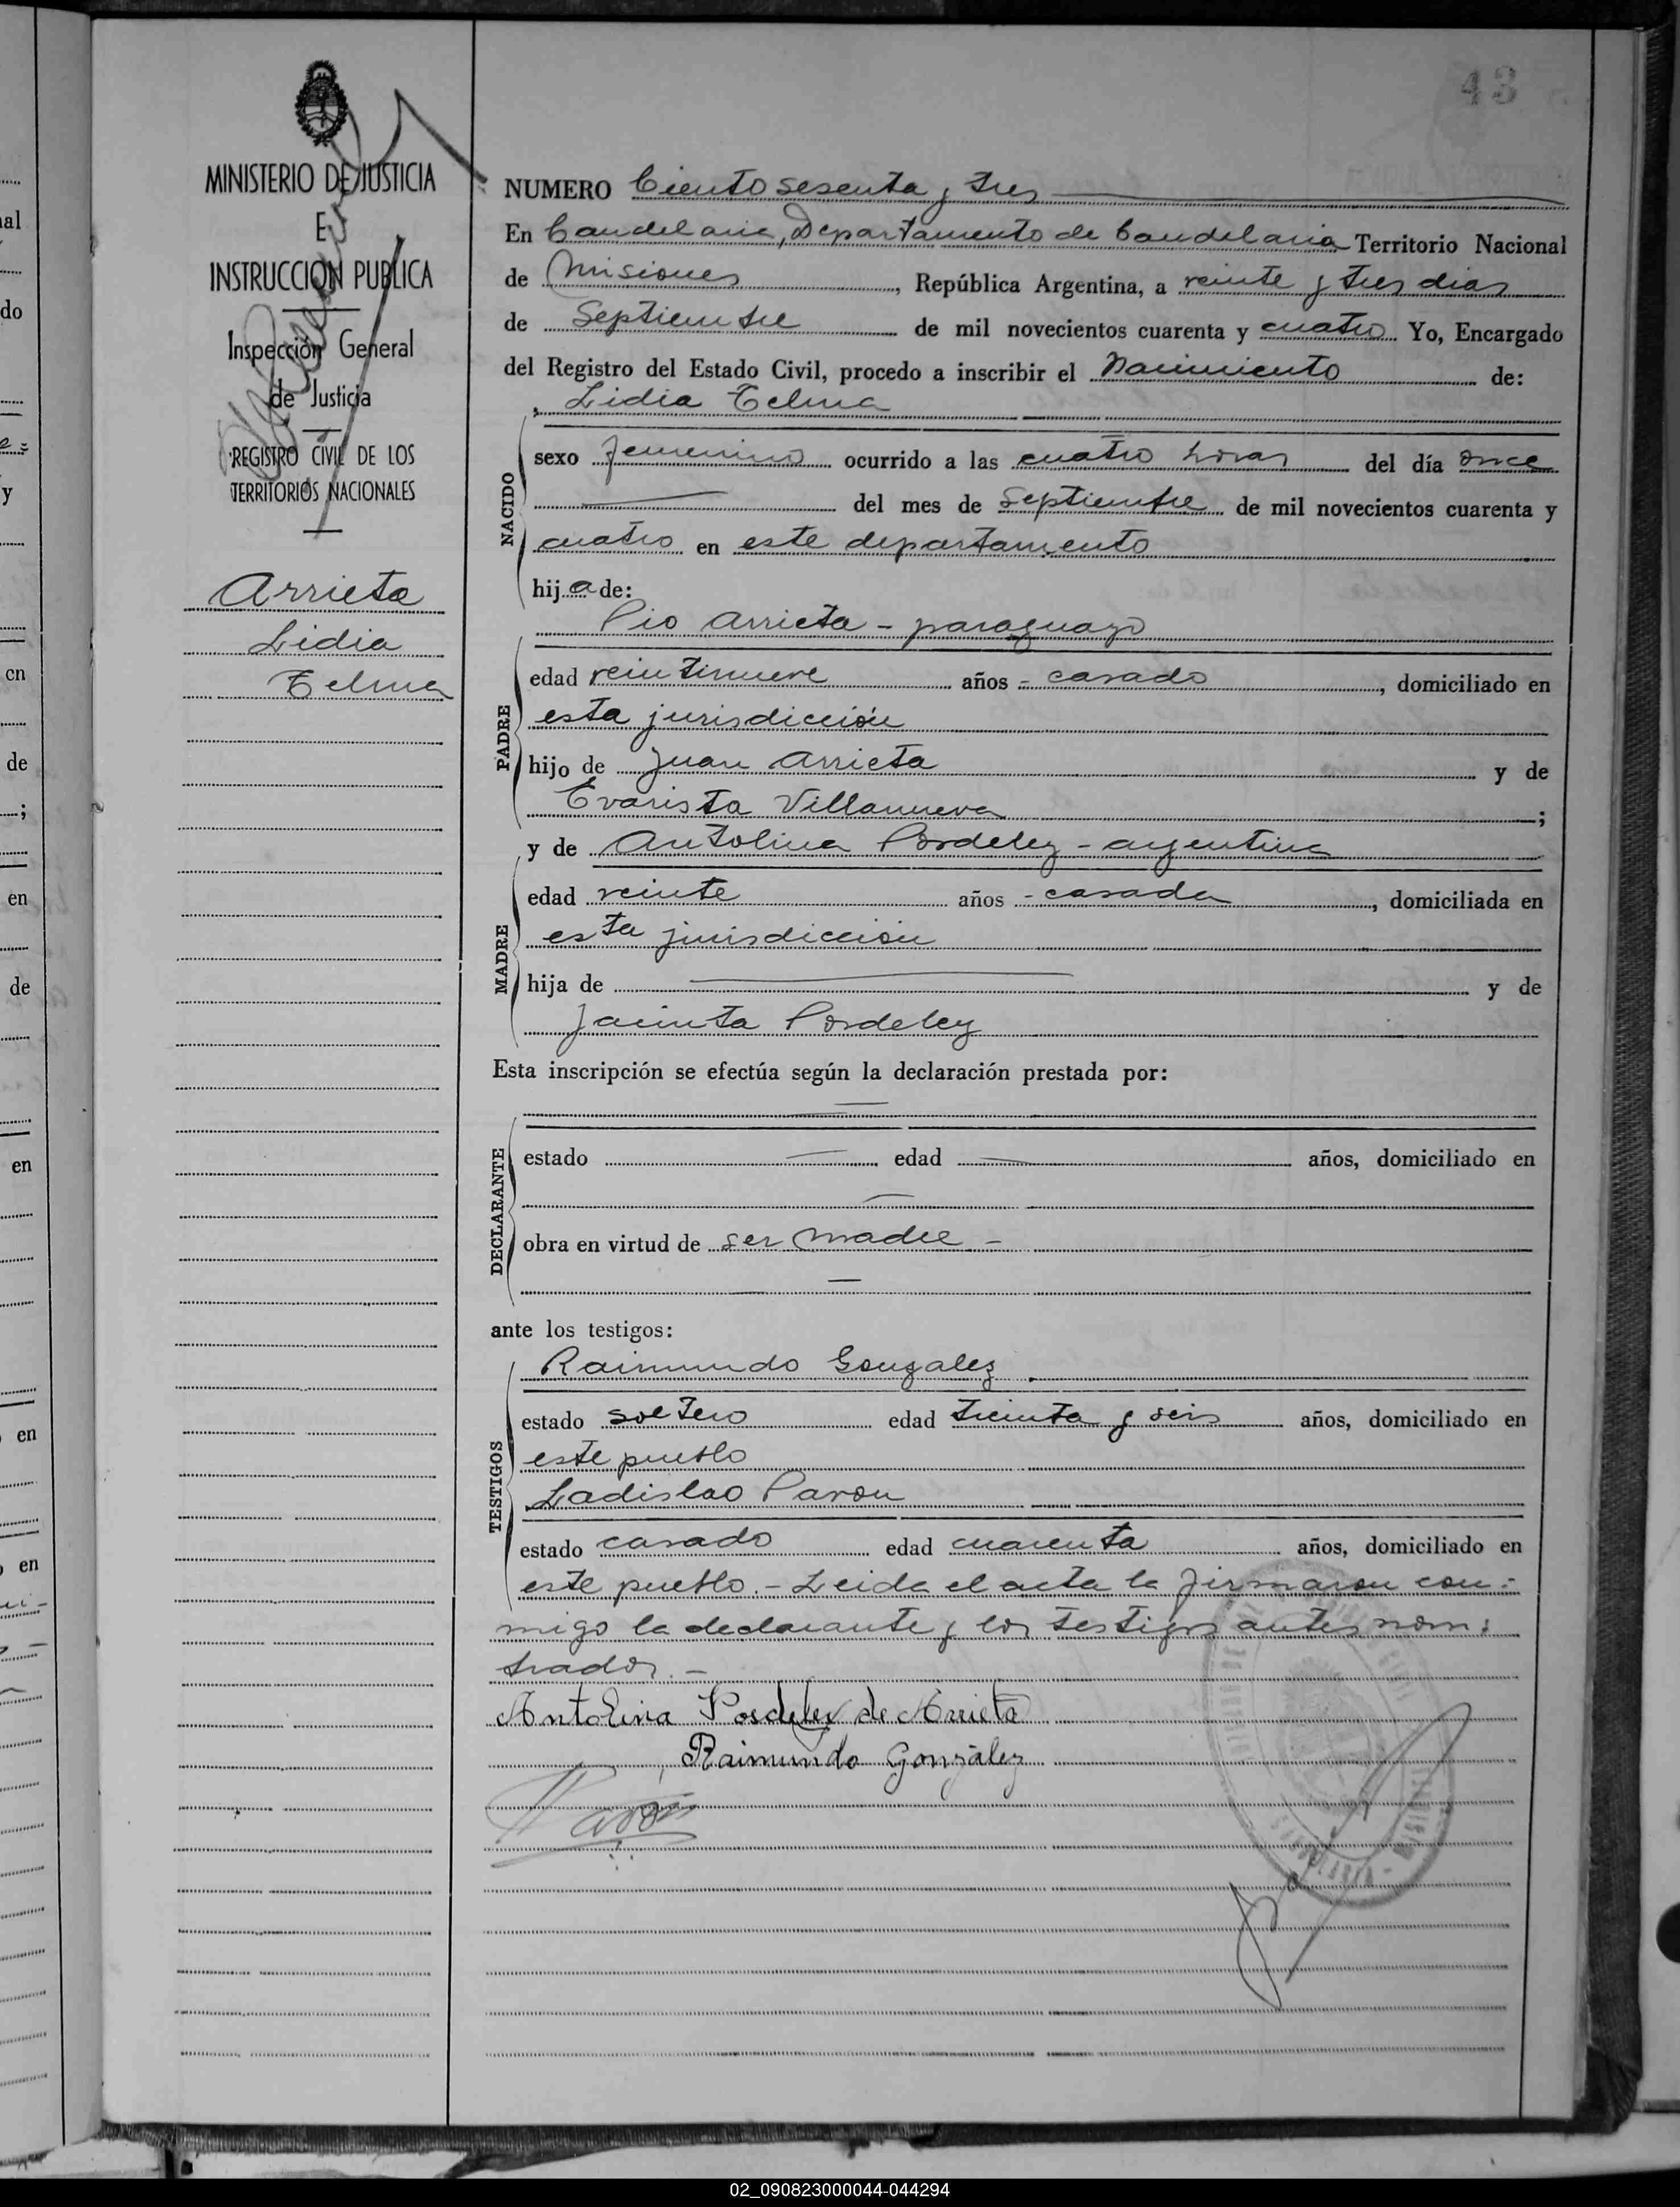 43
MINISTERIO DE JUSTICIA
E
INSTRUCCION PUBLICA
Inspección General
de Justicia
REGISTRO CIVIL DE LOS
TERRITORIOS NACIONALES
Arrieta
Lidia
Telma
NUMERO Ciento sesenta y tres
En Candelaria, Departamento de Candelaria Territorio Nacional
de Misiones, República Argentina, a veinte y tres dias
de Septiembre de mil novecientos cuarenta y cuatro Yo, Encargado
del Registro del Estado Civil, procedo a inscribir el Nacimiento de:
Lidia Telma
NACIDO
sexo femenino ocurrido a las cuatro horas del día once
del mes de Septiembre de mil novecientos cuarenta y
cuatro en este departamento
hija de:
Pio Arrieta - paraguayo
PADRE
edad veintinueve años - casado, domiciliado en
esta jurisdicción
hijo de Juan Arrieta y de
Evarista Villanueva;
y de Antolina Posdeley - argentina
MADRE
edad veinte años - casada, domiciliada en
esta jurisdicción
hija de y de
Jacinta Posdeley
Esta inscripción se efectúa según la declaración prestada por:
DECLARANTE
estado edad años, domiciliado en
obra en virtud de ser madre -
ante los testigos:
TESTIGOS
Raimundo Gonzalez
estado soltero edad treinta y seis años, domiciliado en
este pueblo
Ladislao Pavon
estado casado edad cuarenta años, domiciliado en
este pueblo. - Leida el acta la firmaron con-
migo la declarante y los testigos antes nom-
brados. -
Antolina Posdeley de Arrieta
Raimundo González
Pavón
02_090823000044-044294